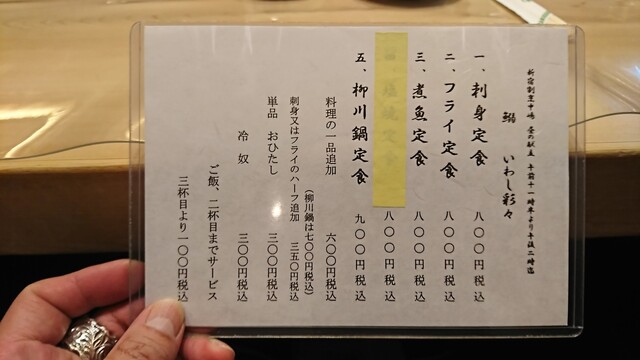 新宿割烹中嶋 昼の献立 午前十一時半より午後二時迄
鰯 いわし彩々
一、刺身定食 八〇〇円税込
二、フライ定食 八〇〇円税込
三、煮魚定食 八〇〇円税込
四、塩焼定食 八〇〇円税込
五、柳川鍋定食 九〇〇円税込
料理の一品追加 六〇〇円税込
(柳川鍋は七〇〇円税込)
刺身又はフライのハーフ追加 三五〇円税込
単品 おひたし 三〇〇円税込
冷奴 三〇〇円税込
ご飯、二杯目までサービス
三杯目より一〇〇円税込